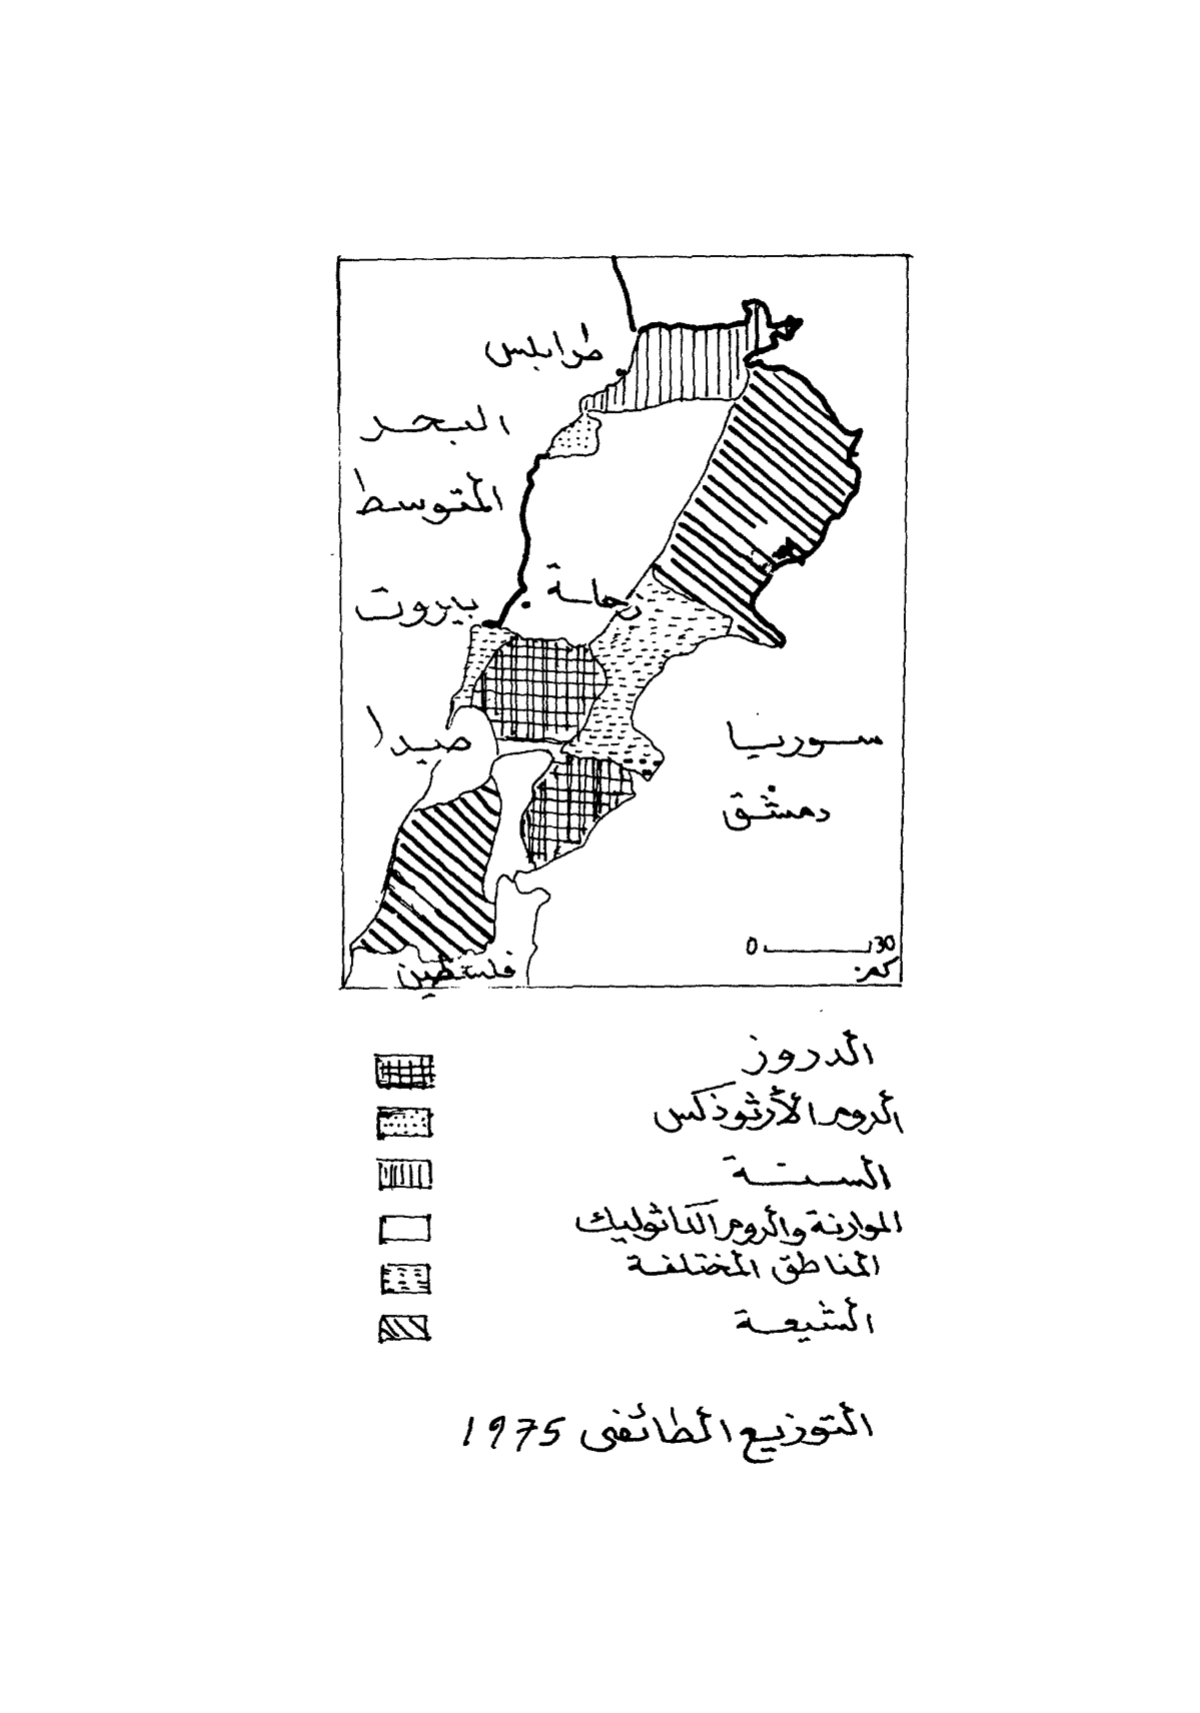 طرابلس
البحر
المتوسط
بيروت
صيدا
سوريا
دمشق
0 30
كم.
فلسطين
الدروز
الروم الأرثوذكس
السنة
الموارنة والروم الكاثوليك
المناطق المختلفة
الشيعة
التوزيع الطائفى 1975